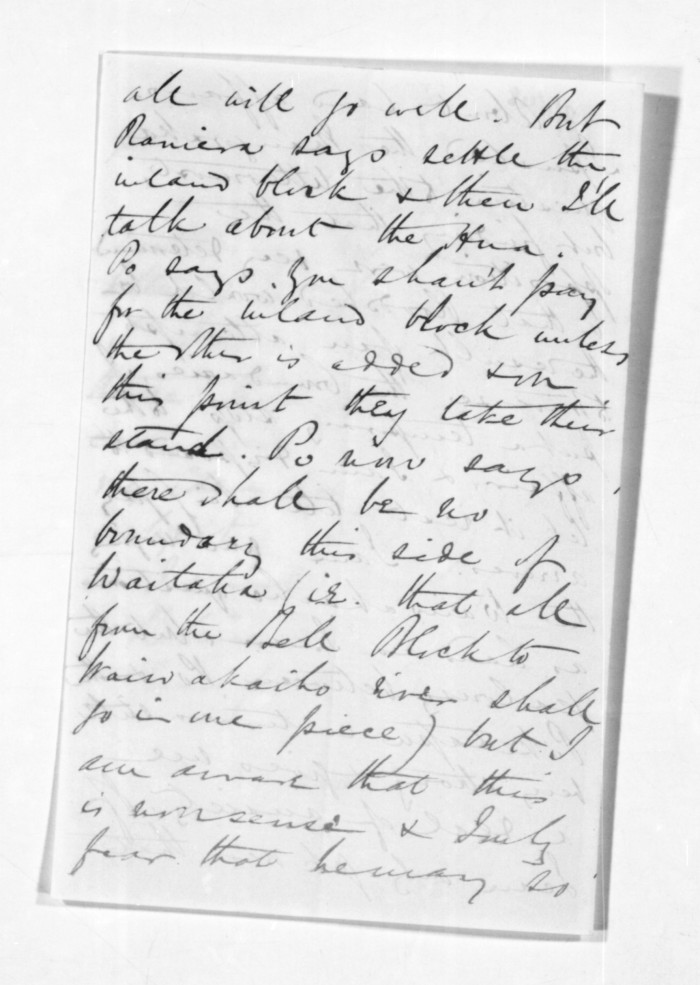 all will go well. But
Raniera says settle the
inland block & then I'll
talk about the Hua.
Po says. You shan't pay
for the inland block unless
the other is added & on
this point they take their
stand. Po now says
there shall be no
boundary this side of
Waitaha (i.e. that all
from the Bell Block to
Waiwakaiho river shall
go in one piece) but I
am aware that this
is nonsense & I only
fear that he may so